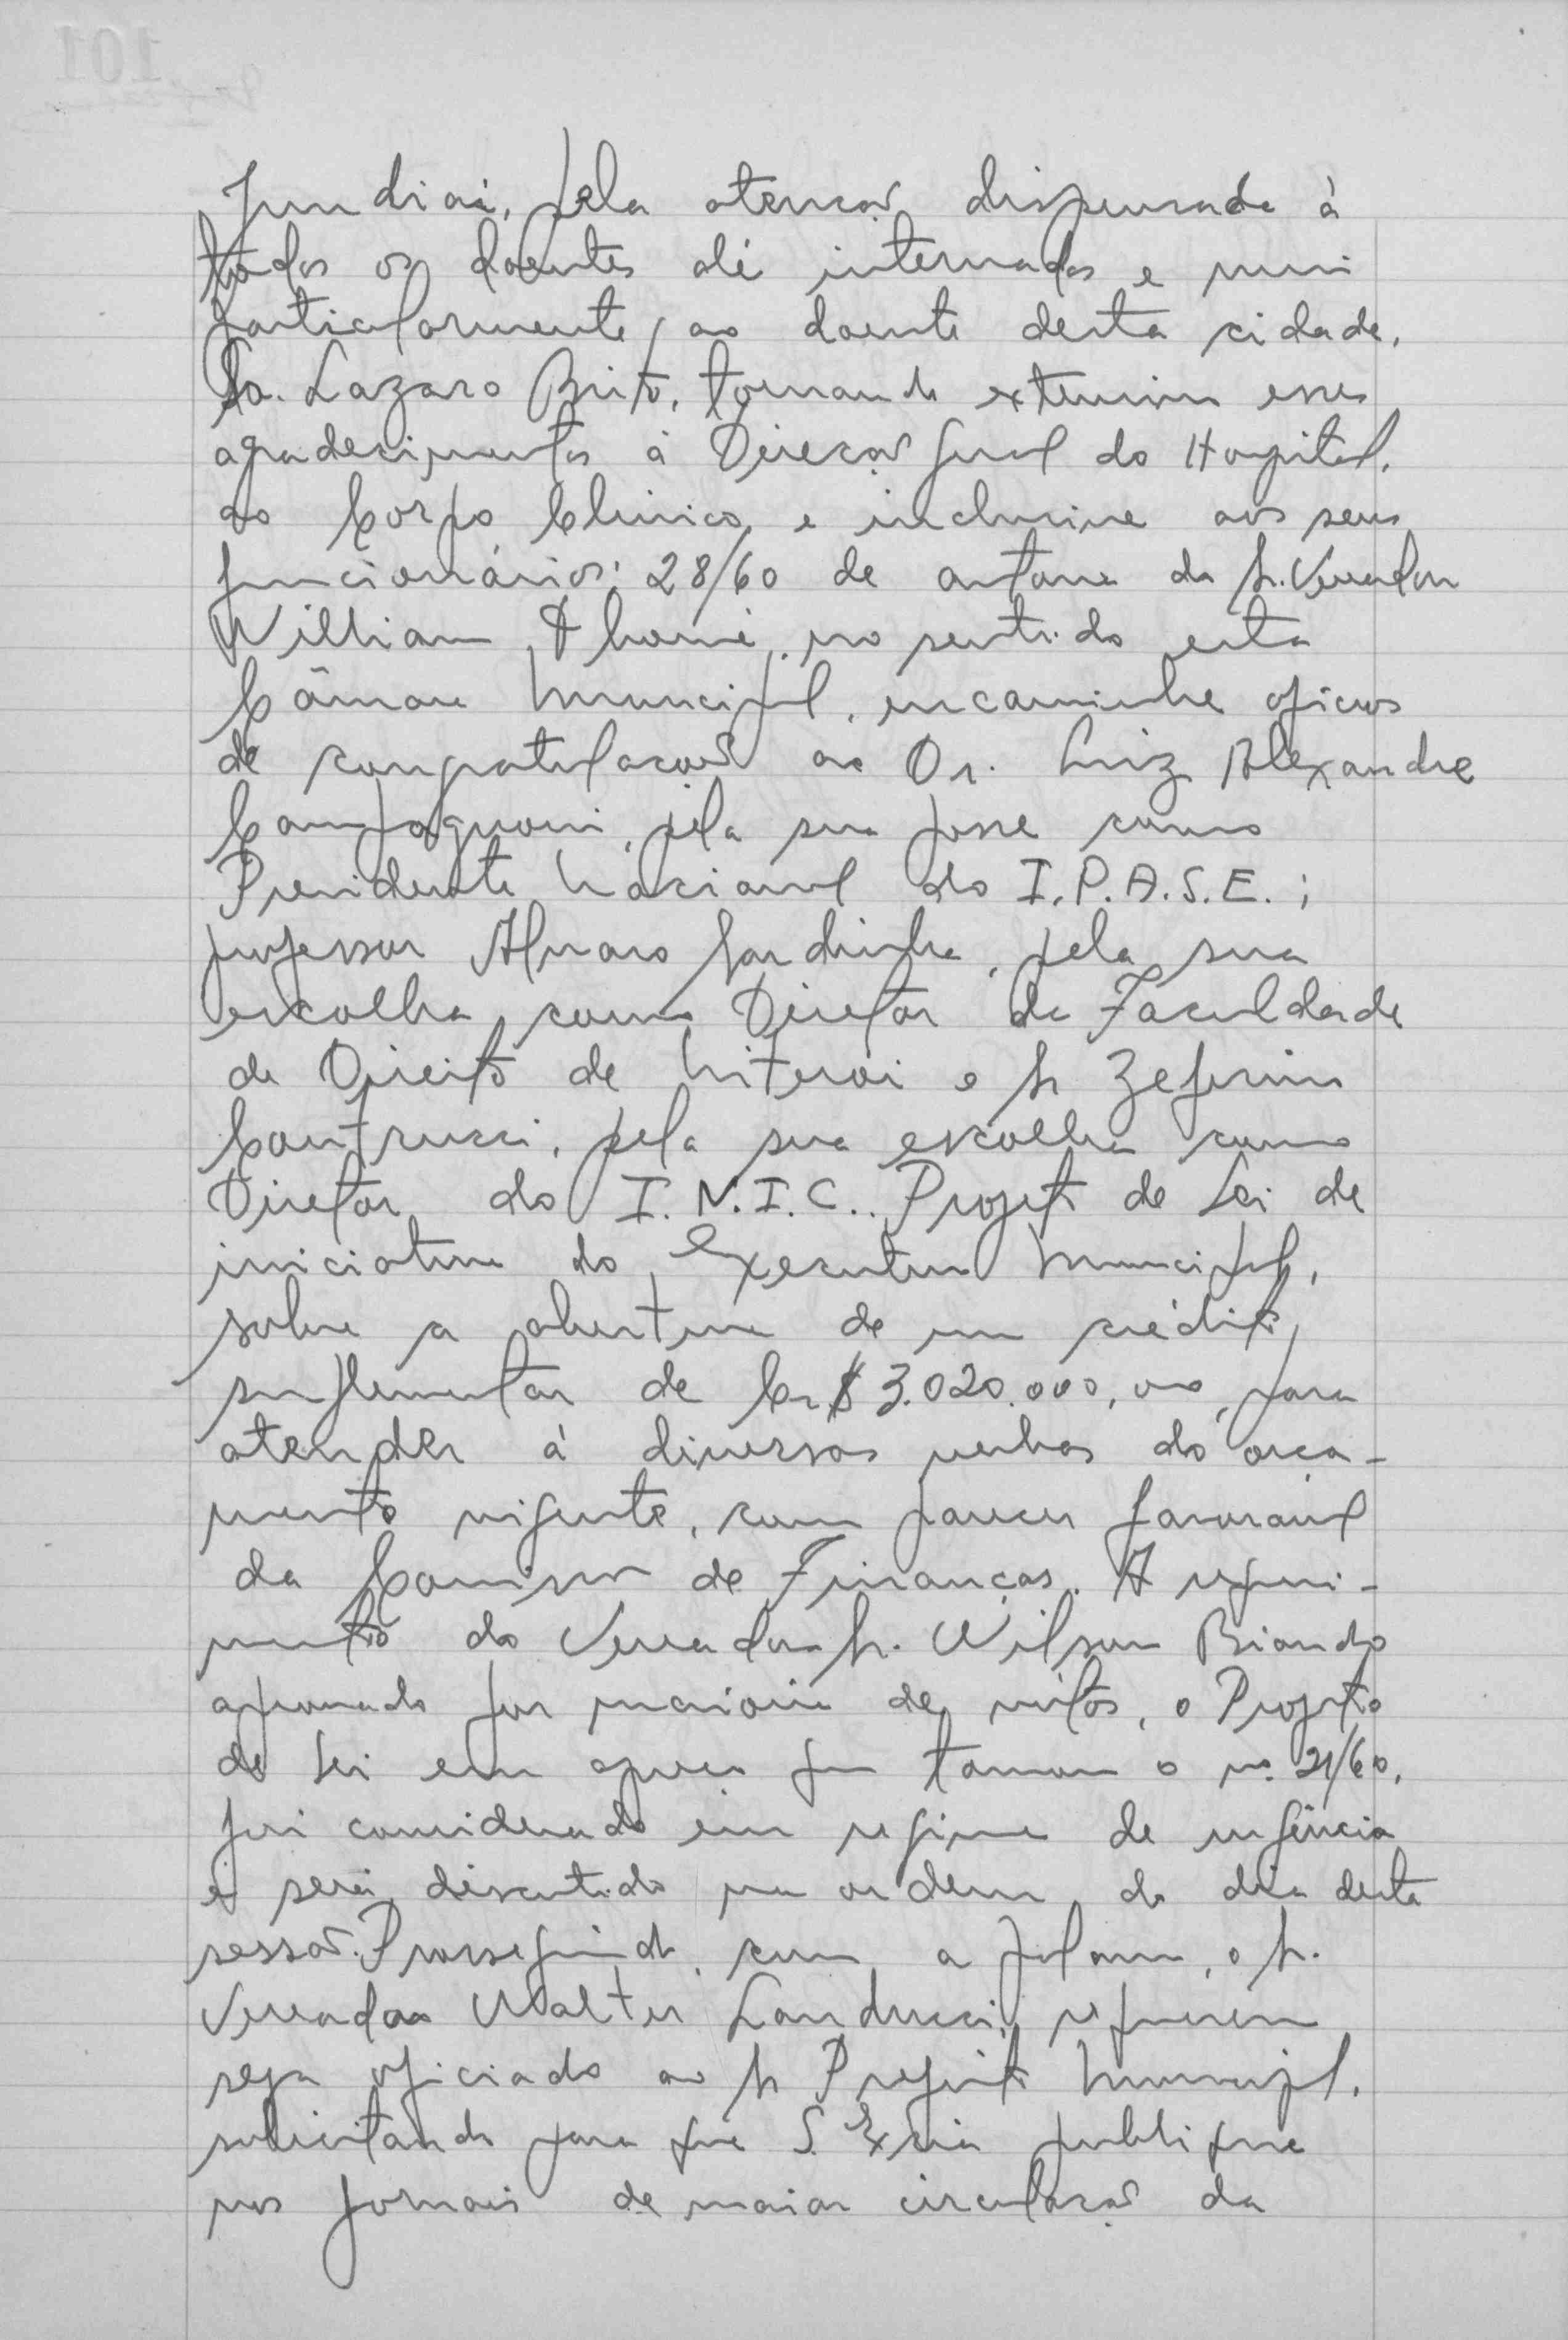 Jundiaí, pela atenção dispensada à
todos os doentes alí internados e mui
particularmente, ao doente desta cidade,
Sr. Lazaro Brito, tornando extensivos esses
agradecimentos à Direção Geral do Hospital,
ao Corpo Clinico, e inclusive aos seus
funcionários; 28/60 de autoria do Sr. Vereador
William Thomé, no sentido esta
Câmara Municipal, encaminhe oficios
de congratulações ao Dr. Luiz Alexandre
Compagnoni, pela sua posse como
Presidente Nacional do I.P.A.S.E.;
professor Alvaro Sardinha, pela sua
escolha como Diretor da Faculdade
de Direito de Niteroi e Sr Zeferino
Contrucci, pela sua escolha como
Diretor do I.N.I.C.. Projeto de Lei de
iniciativa do Executivo Municipal,
sobre a abertura de um crédito
suplementar de Cr$ 3.020.000,00, para
atender à diversas verbas do orça-
mento vigente, com parecer favoravel
da Comissão de Finanças. A requeri-
mento do Vereador Sr. Wilson Biando
aprovado por maioria de vótos, o Projeto
de Lei em apreço que tomou o nº 21/60,
foi considerado em regime de urgência
e será discutido na ordem do dia desta
sessão. Prosseguindo com a palavra, o Sr.
Vereador Walter Landucci, requereu
seja oficiado ao Sr Prefeito Municipal,
solicitando para que S. Excia publique
nos jornais de maior circulação da